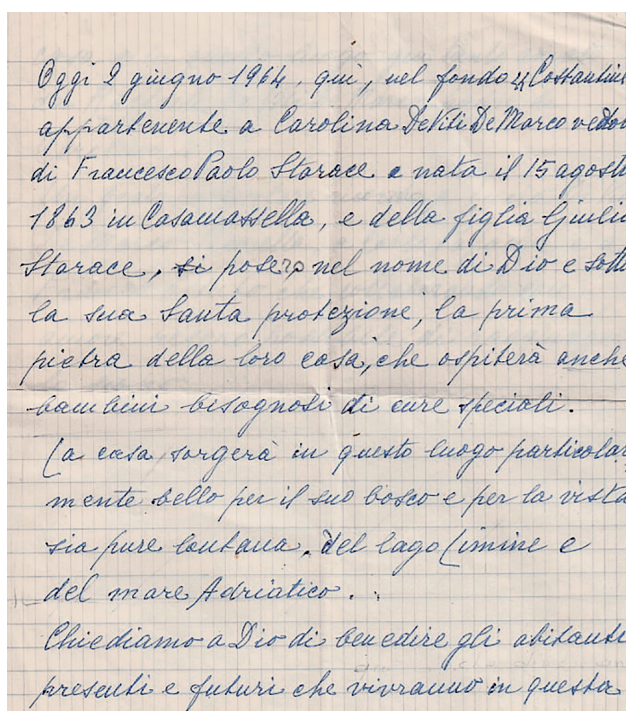 Oggi 2 giugno 1964, qui, nel fondo "Costantine
appartenente a Carolina De Viti De Marco vedov
di Francesco Paolo Starace e nata il 15 agosto
1863 in Casamassella, e della figlia Giulia
Starace, si posero nel nome di Dio e sotto
la sua Santa protezione, la prima
pietra della loro casa, che ospiterà anche
bambini bisognosi di cure speciali.
La casa sorgerà in questo luogo particolar,
mente bello per il suo bosco e per la vista
sia pure lontana, del lago Limine e
del mare Adriatico.
Chiediamo a Dio di benedire gli abitanti
presenti e futuri che vivranno in questa